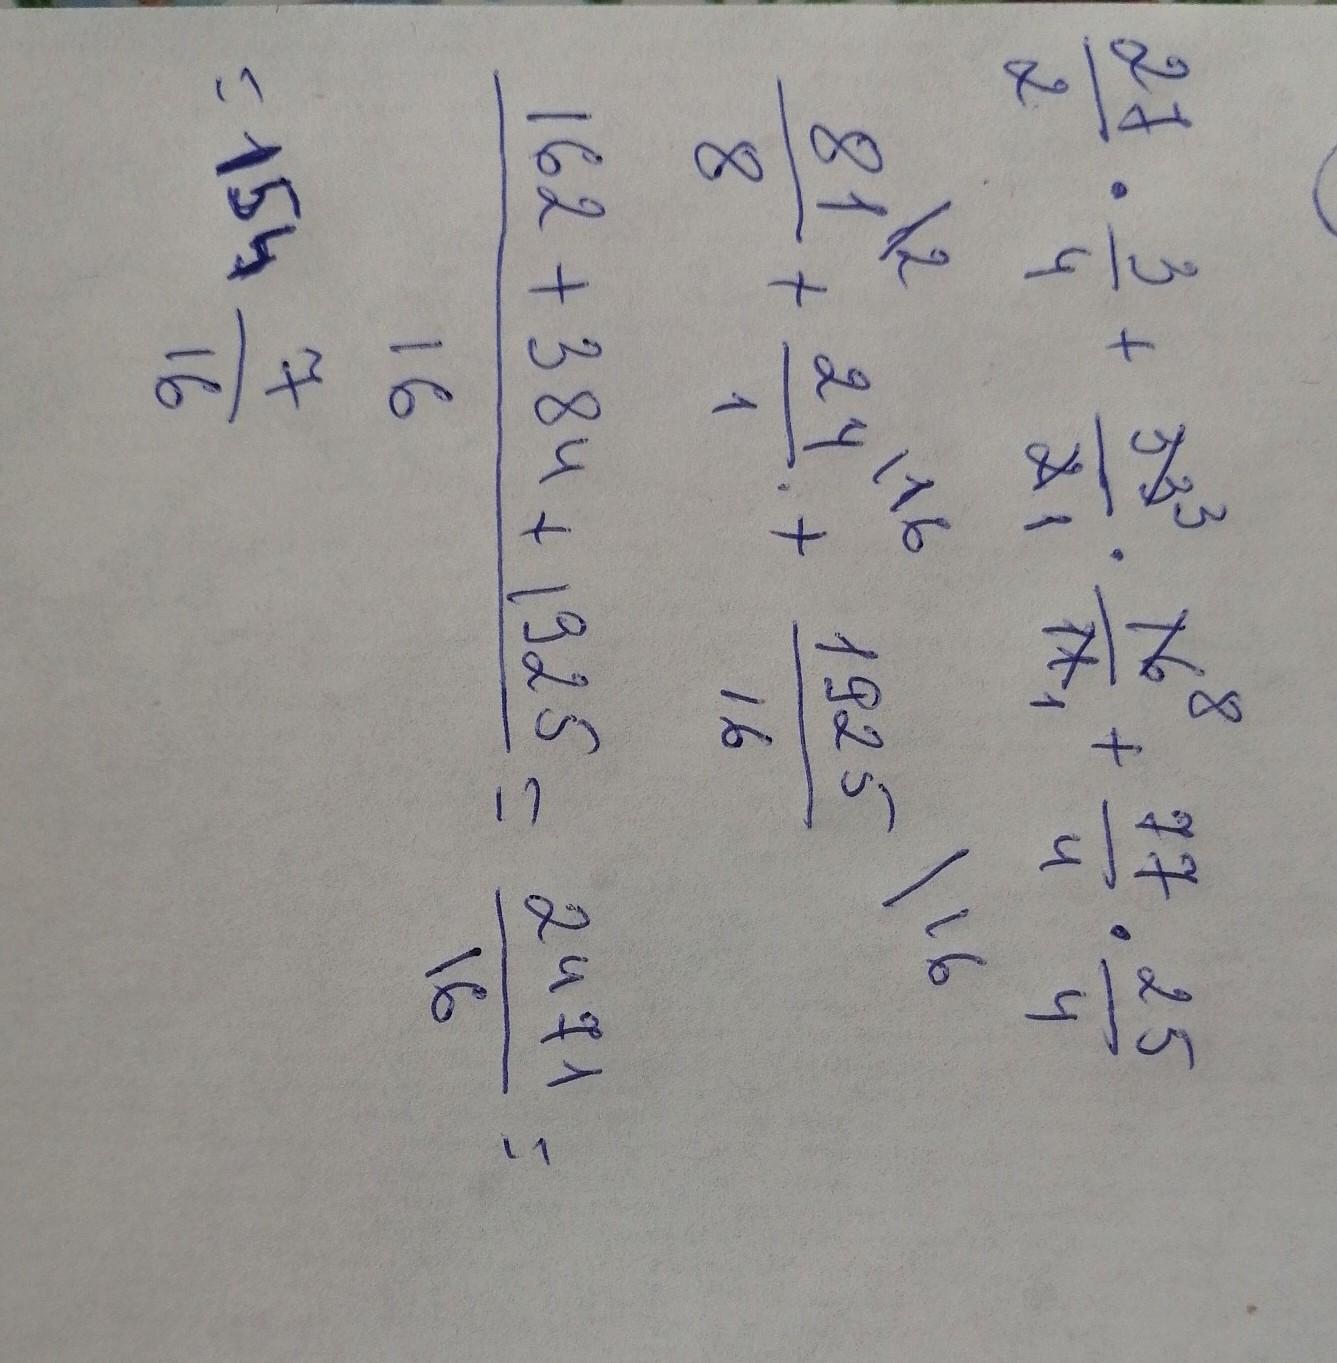 27/2 · 3/4 + 33 3/2 1 · 16 8/11 1 + 77/4 · 25/4
81\2/8 + 24\16/1 + 1925\16/16
162 + 384 + 1925/16 = 2471/16 =
= 154 7/16